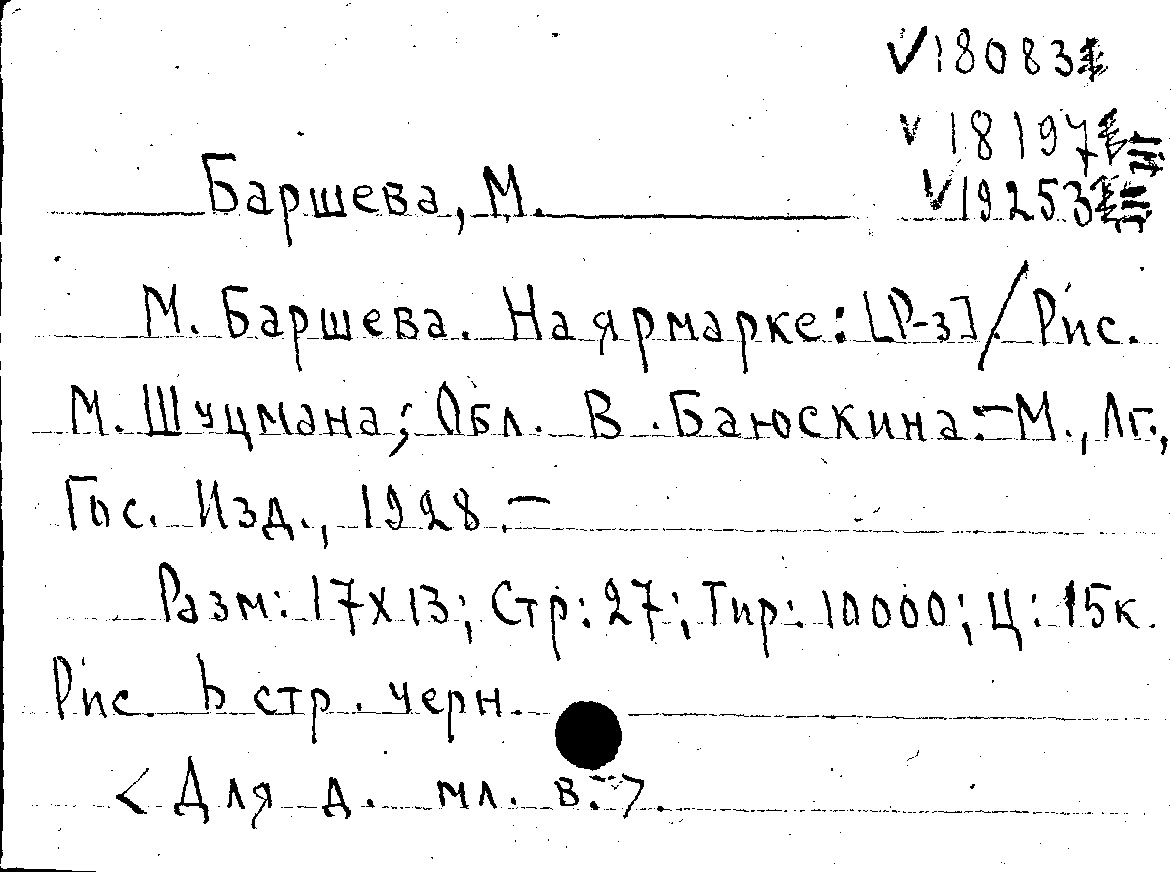 √18083
√18197
√19253
Баршева, М.
М. Баршева. На ярмарке: [Р-з] / Рис.
М. Шуцмана; Обл. В. Баюскина.– М., Лг.,
Гос. Изд., 1928.–
Разм: 17х13; Стр: 27; Тир: 10000; Ц: 15к.
Рис. в стр. черн.
<Для д. мл. в.>.